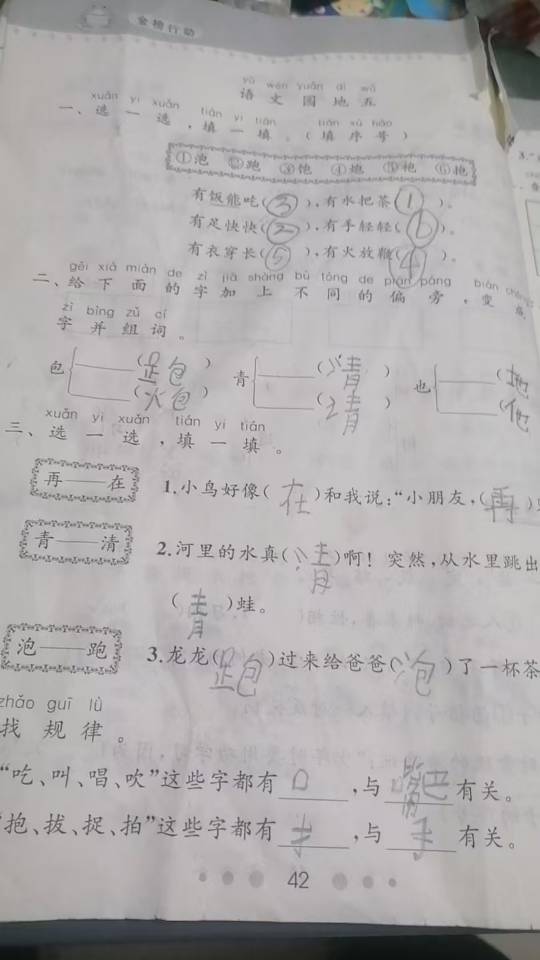 金榜行动
yǔ wén yuán dì wǔ
语文园地五
xuǎn yi xuǎn tián yi tián tián xù hào
一、选一选,填一填。(填序号)
①泡 ②跑 ③饱 ④炮 ⑤袍 ⑥抱
有饭能吃(3),有水把茶(1)。
有足快快(2),有手轻轻(6)。
有衣穿长(5),有火放鞭(4)。
gěi xià miàn de zì jiā shàng bù tóng de piān páng biàn chéng
二、给下面的字加上不同的偏旁,变成
zì bìng zǔ cí
字并组词。
包 (跑) 青 (清) 也 (地
(炮) (情) (他
xuǎn yi xuǎn tián yi tián
三、选一选,填一填。
再——在 1.小鸟好像(在)和我说:“小朋友,(再)
青——清 2.河里的水真(清)啊!突然,从水里跳出
(青)蛙。
泡——跑 3.龙龙(跑)过来给爸爸(泡)了一杯茶
zhǎo guī lǜ
找规律。
“吃、叫、唱、吹”这些字都有口,与嘴巴有关。
“抱、拔、捉、拍”这些字都有扌,与手有关。
42